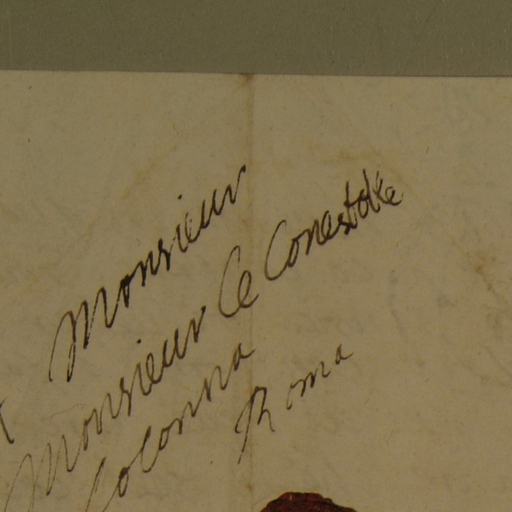 Monsieur
Monsieur Le Conestable
Colonna
Roma